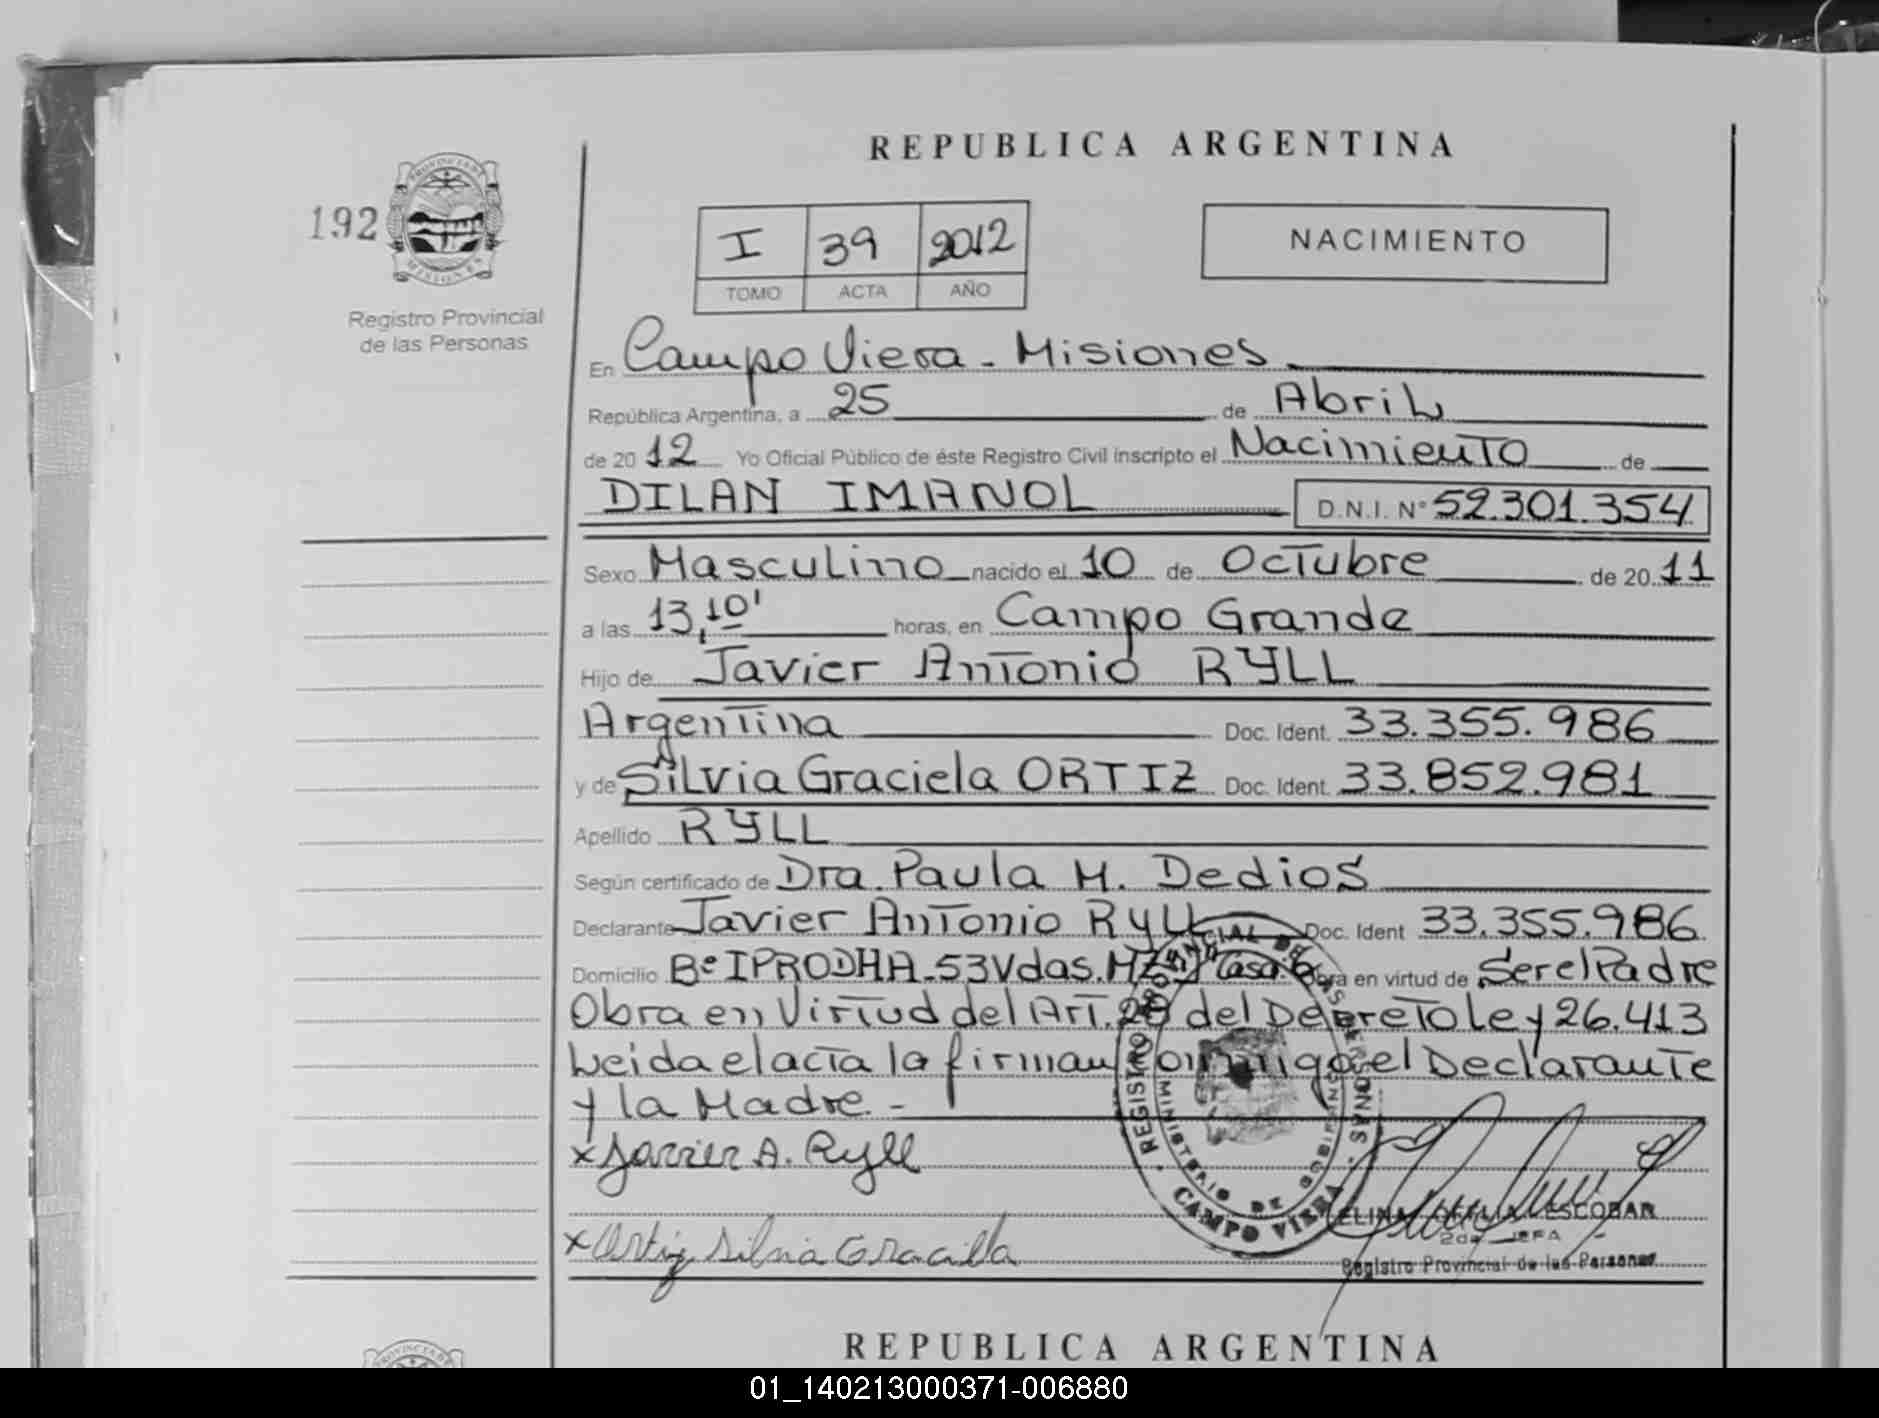 REPUBLICA ARGENTINA
192
PROVINCIA DE
MISIONES
Registro Provincial
de las Personas
I 39 2012
TOMO ACTA AÑO
NACIMIENTO
En Campo Viera - Misiones
República Argentina, a 25 de Abril
de 20 12 Yo Oficial Público de éste Registro Civil inscripto el Nacimiento de
DILAN IMANOL D.N.I. N° 52.301.354
Sexo Masculino nacido el 10 de Octubre de 20 11
a las 13,10' horas, en Campo Grande
Hijo de Javier Antonio RYLL
Argentina Doc. Ident. 33.355.986
y de Silvia Graciela ORTIZ Doc. Ident. 33.852.981
Apellido RYLL
Según certificado de Dra. Paula M. Dedios
Declarante Javier Antonio RYLL Doc. Ident 33.355.986
Domicilio Bº IPRODHA-53Vdas. MZ Casa 6 Obra en virtud de Ser el Padre
Obra en Virtud del Art. 28 del Decreto Ley 26.413
Leida el acta la firman conmigo el Declarante
y la Madre.-
x Javier A. Ryll
x Ortiz Silvia Graciela
REGISTRO PROVINCIAL DE LAS PERSONAS
MINISTERIO DE GOBIERNO
CAMPO VIERA
OFELIA ESCOBAR
2da JEFA
Registro Provincial de las Personas
REPUBLICA ARGENTINA
PROVINCIA DE
01_140213000371-006880